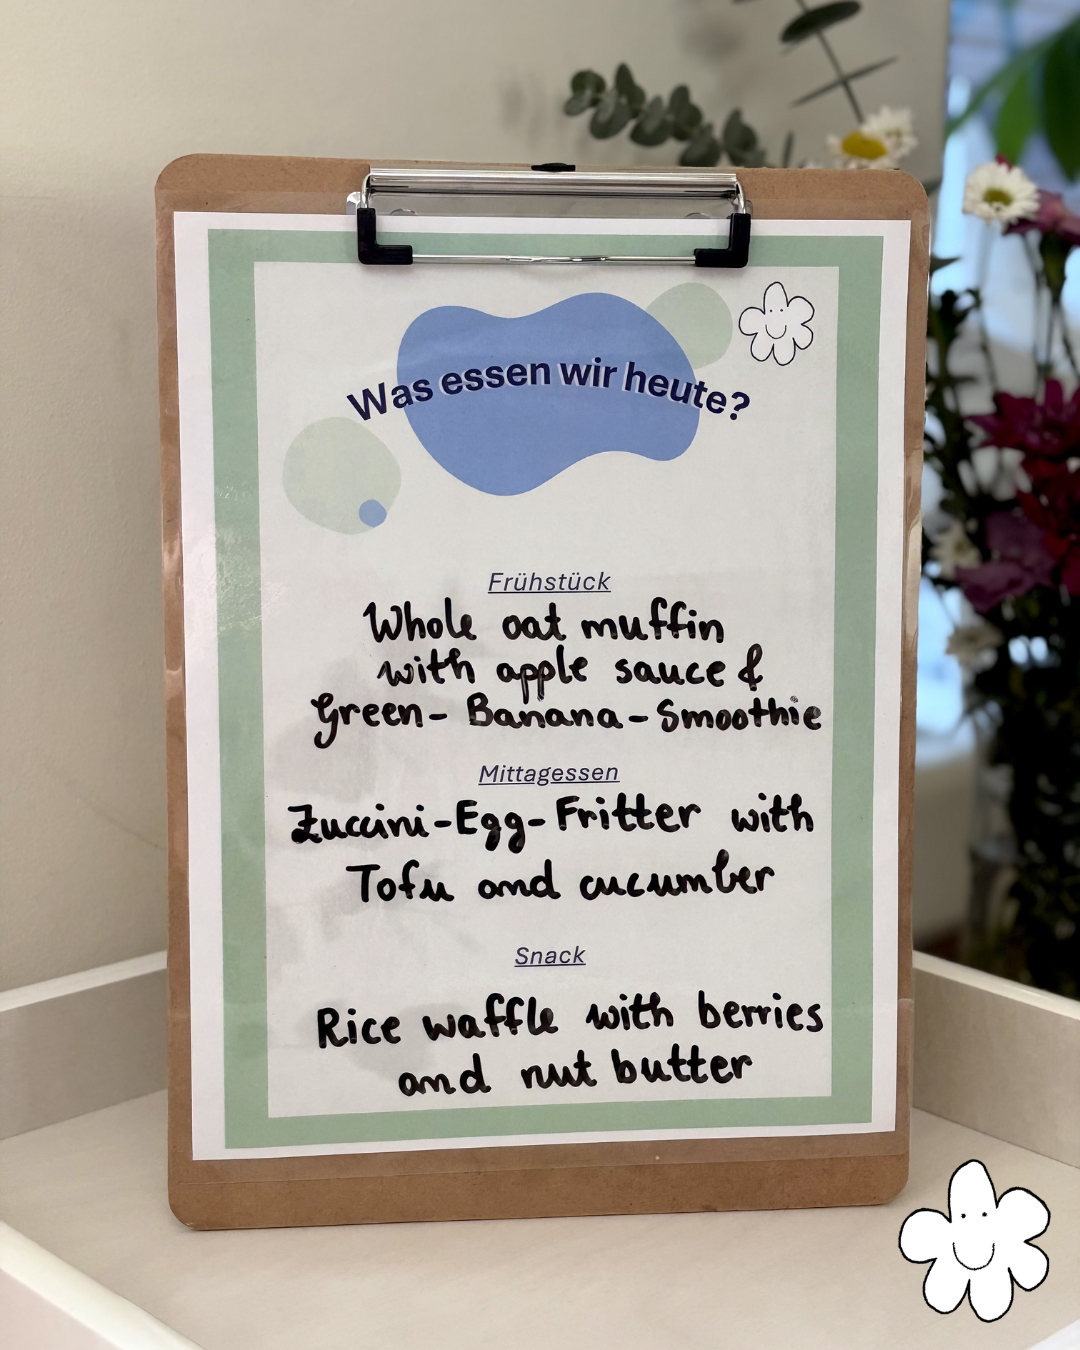 Was essen wir heute?
Frühstück
Whole oat muffin
with apple sauce &
Green-Banana-Smoothie
Mittagessen
Zuccini-Egg-Fritter with
Tofu and cucumber
Snack
Rice waffle with berries
and nut butter